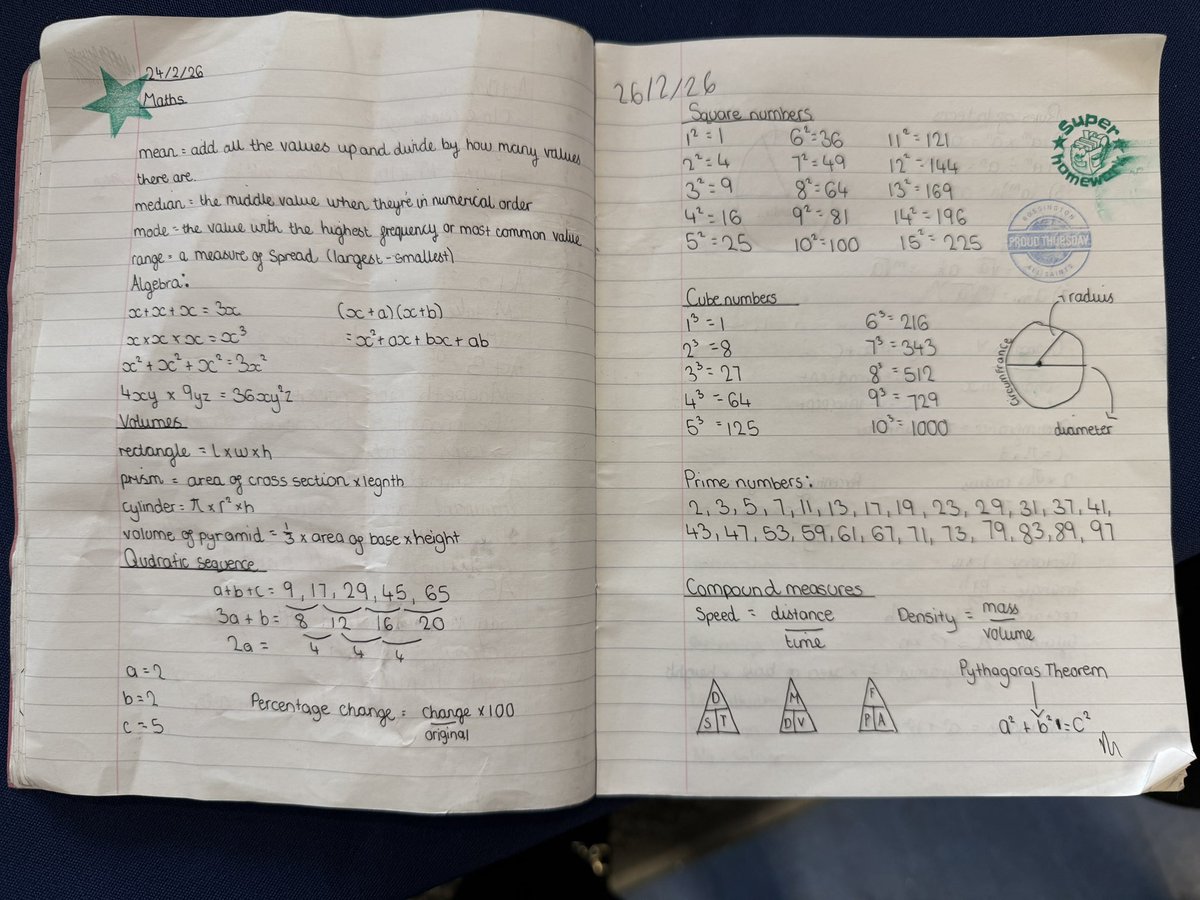 24/2/26
Maths
mean = add all the values up and divide by how many values
there are.
median = the middle value when they're in numerical order
mode = the value with the highest frequency or most common value
range = a measure of spread (largest - smallest)
Algebra:
x+x+x = 3x
(x+a)(x+b)
x×x×x = x³
= x²+ax+bx+ab
x²+x²+x² = 3x²
4xy × 9yz = 36xy²z
Volumes
rectangle = l×w×h
prism = area of cross section × legnth
cylinder = π×r²×h
volume of pyramid = 1/3 × area of base × height
Qudratic sequence
a+b+c = 9, 17, 29, 45, 65
3a+b = 8 12 16 20
2a = 4 4 4
a=2
b=2
c=5
Percentage change = change/original ×100
26/2/26
Square numbers
1²=1 6²=36 11²=121
2²=4 7²=49 12²=144
3²=9 8²=64 13²=169
4²=16 9²=81 14²=196
5²=25 10²=100 15²=225
Super homework
ROSSINGTON
PROUD THURSDAY
ALL SAINTS
Cube numbers
1³=1 6³=216
2³=8 7³=343
3³=27 8³=512
4³=64 9³=729
5³=125 10³=1000
radius
Circumfrance
diameter
Prime numbers:
2, 3, 5, 7, 11, 13, 17, 19, 23, 29, 31, 37, 41,
43, 47, 53, 59, 61, 67, 71, 73, 79, 83, 89, 97
Compound measures
Speed = distance/time
Density = mass/volume
D
S T
M
D V
F
P A
Pythagoras Theorem
a²+b²=c²